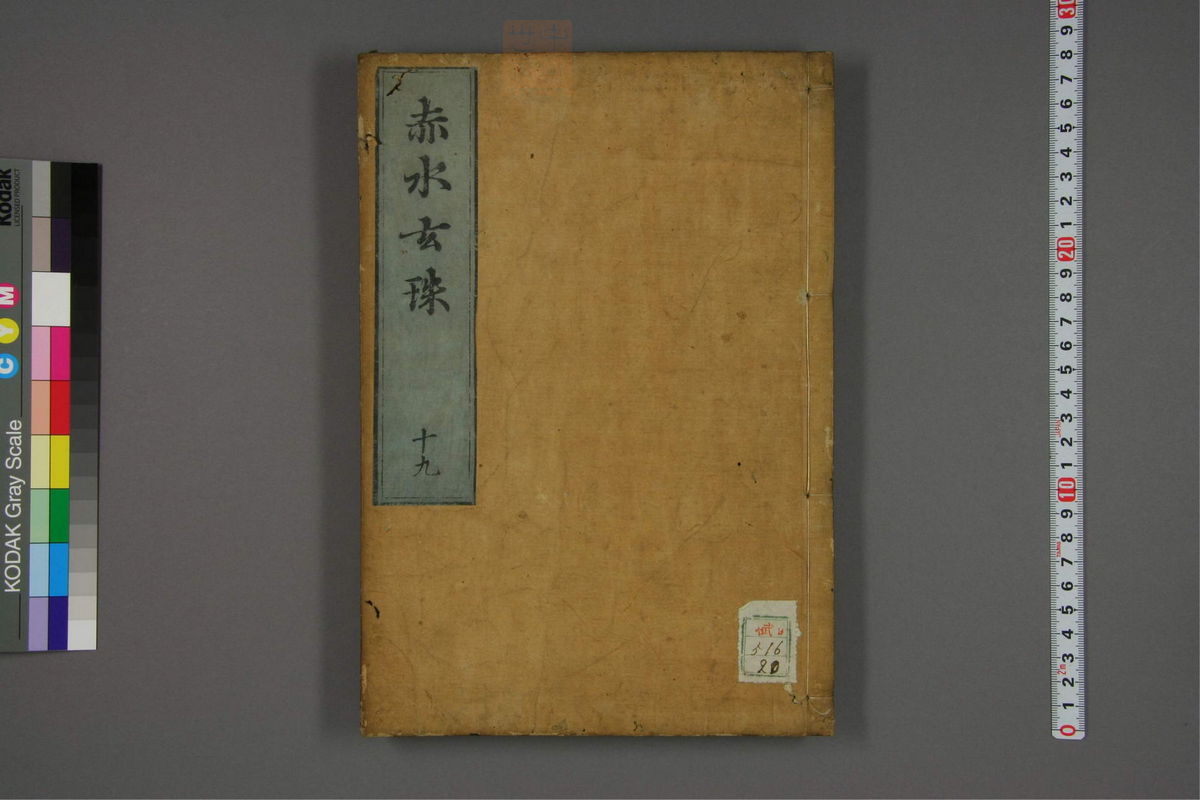 赤水玄珠
十九
516
20
Kodak
LICENSED PRODUCT
C Y M
KODAK Gray Scale
30
9
8
7
6
5
4
3
2
1
20
9
8
7
6
5
4
3
2
1
10
9
8
7
6
5
4
3
2m
2
1
0